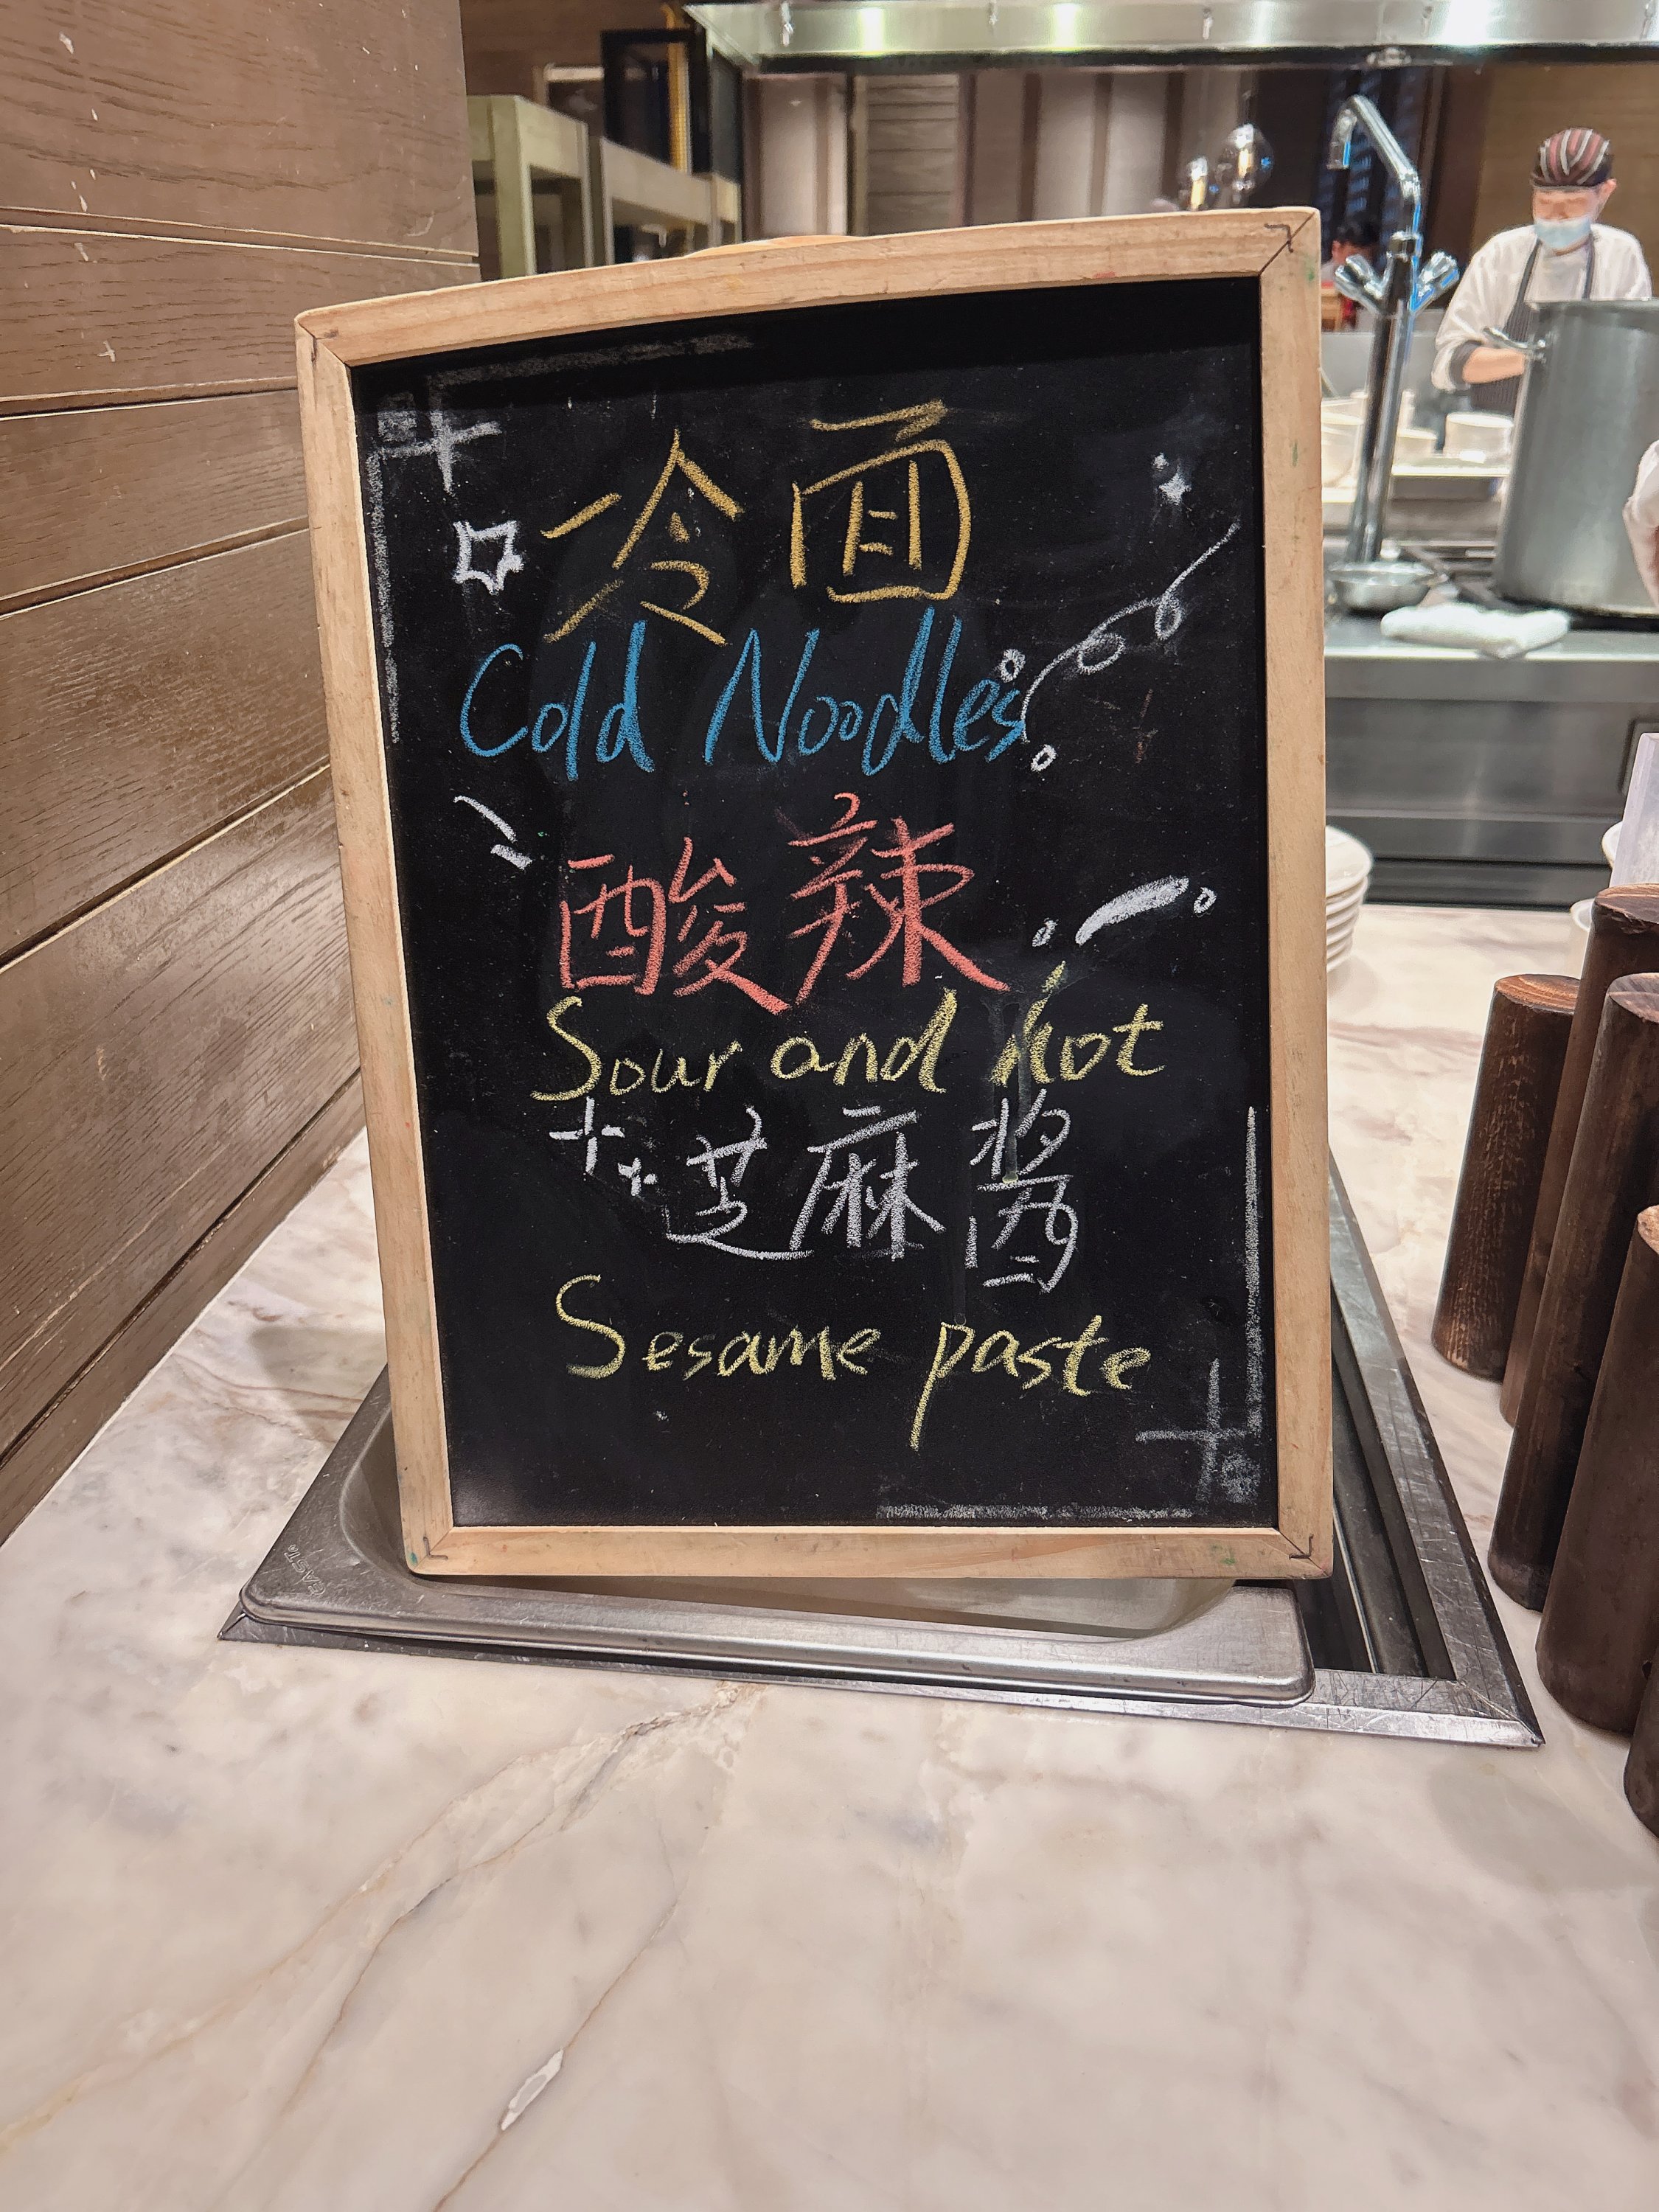 冷面
Cold Noodles
酸辣
Sour and hot
芝麻酱
Sesame paste